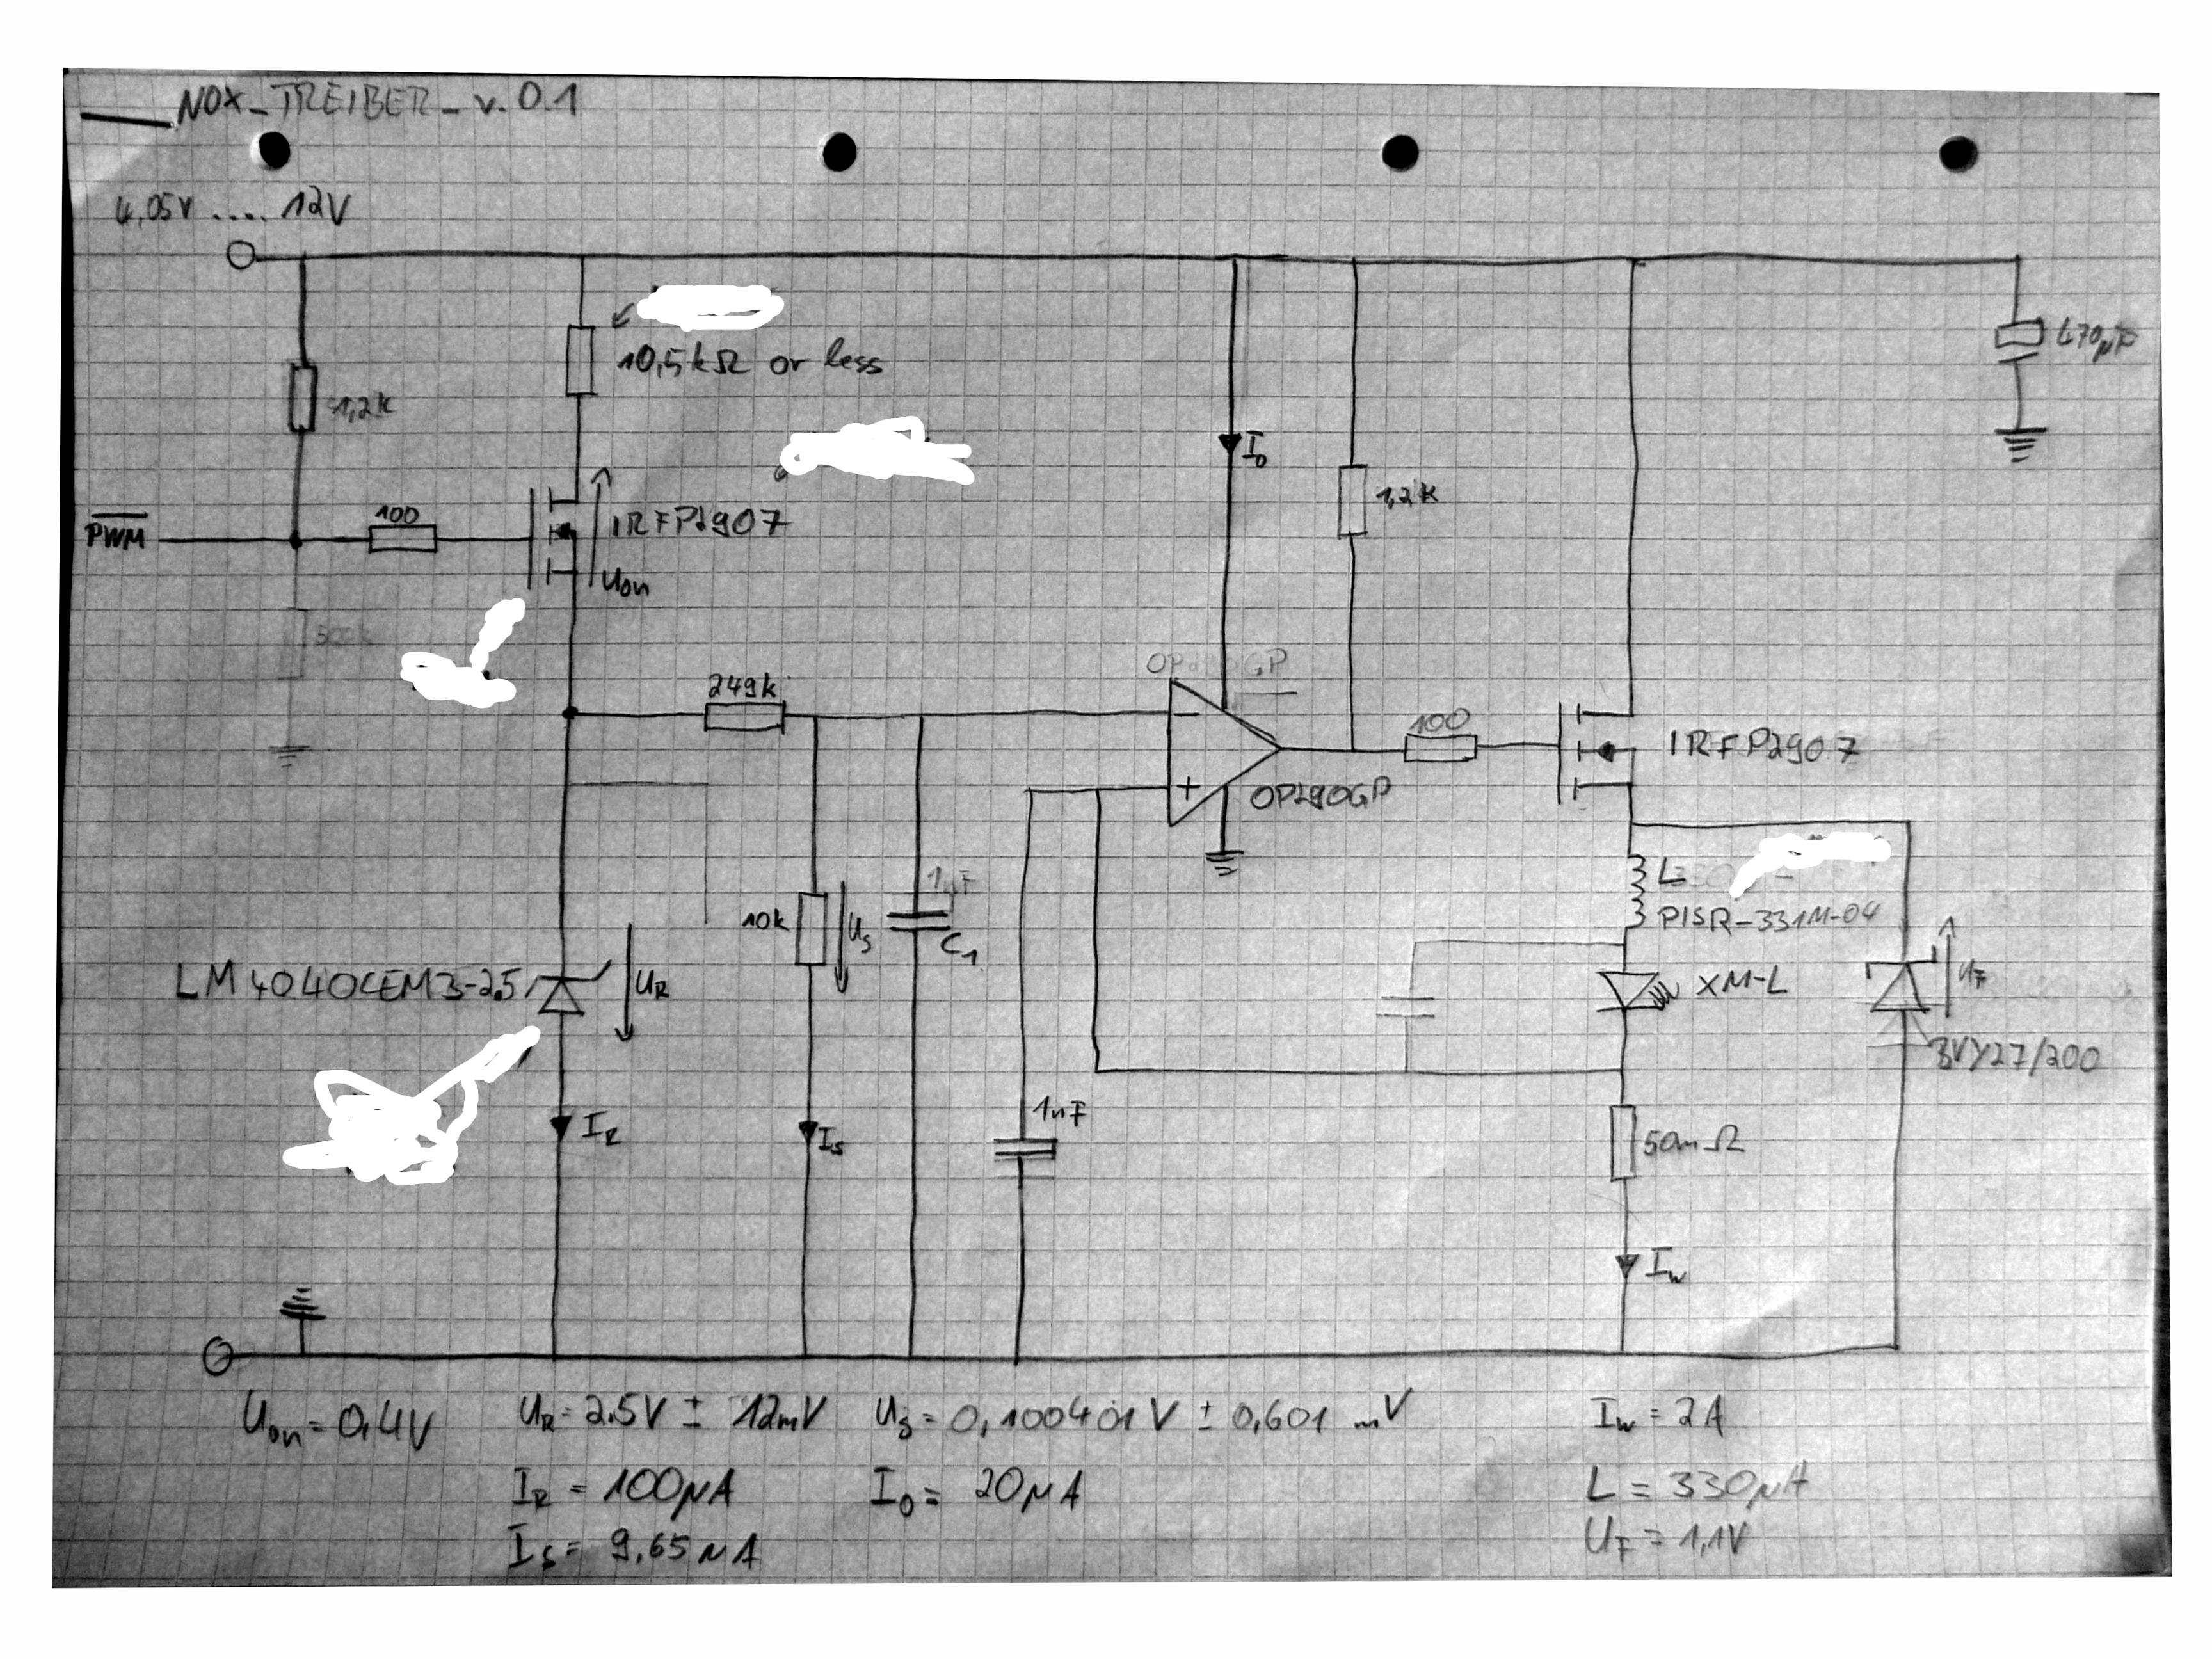 NOX_TREIBER_v.0.1
4,05V .... 12V
470µF
10,5kΩ or less
1,2k
I0
1,2k
PWM
100
IRFP2907
Uon
249k
OP290GP
100
IRFP2907
OP290GP
1µF
L
PISR-331M-04
10k
US
C1
LM4040CEM3-2.5
UR
XM-L
UF
BVY27/200
1nF
IR
IS
50mΩ
IW
Uon = 0,4V
UR = 2.5V ± 12mV
US = 0,100401V ± 0,601 mV
IW = 2A
IR = 100µA
I0 = 20µA
L = 330µH
IS = 9,65µA
UF = 1,1V